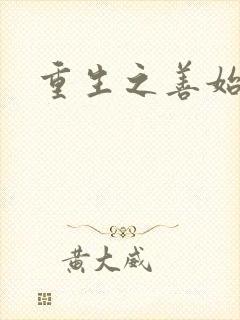 重生之善始
黄大威